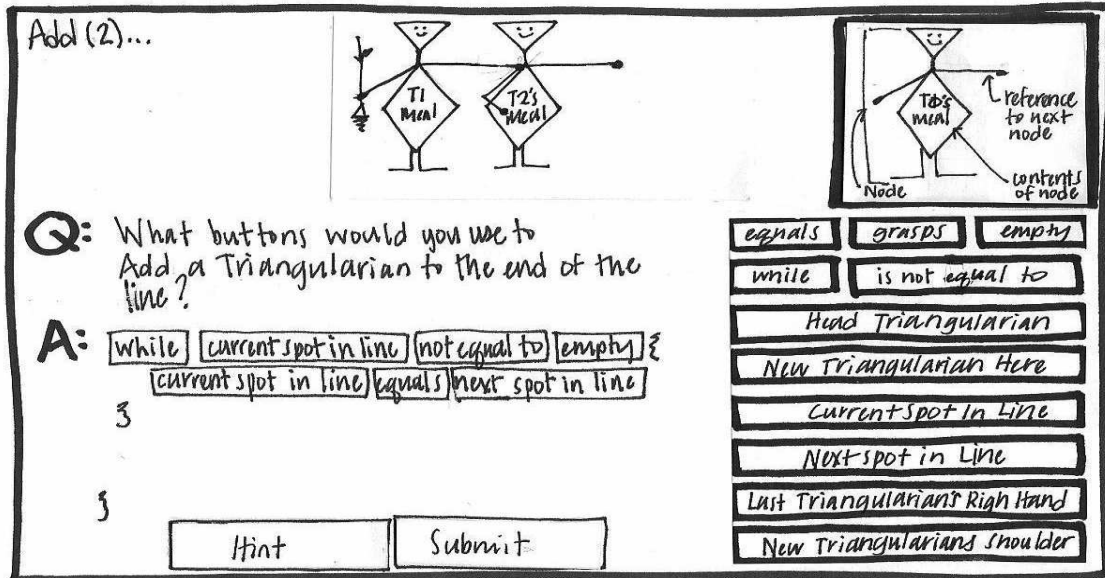 Add (2)...
T1
Meal
T2's
Meal
Meal
reference
to next
node
contents
of node
Node
Q: What buttons would you use to
Add a Triangularian to the end of the
line?
A: while current spot in line not equal to empty {
current spot in line equals next spot in line
}
}
Hint Submit
equals grasps empty
while is not equal to
Head Triangularian
New Triangularian Here
Current Spot In Line
Next spot in Line
Last Triangularian's Righ Hand
New Triangularians Shoulder